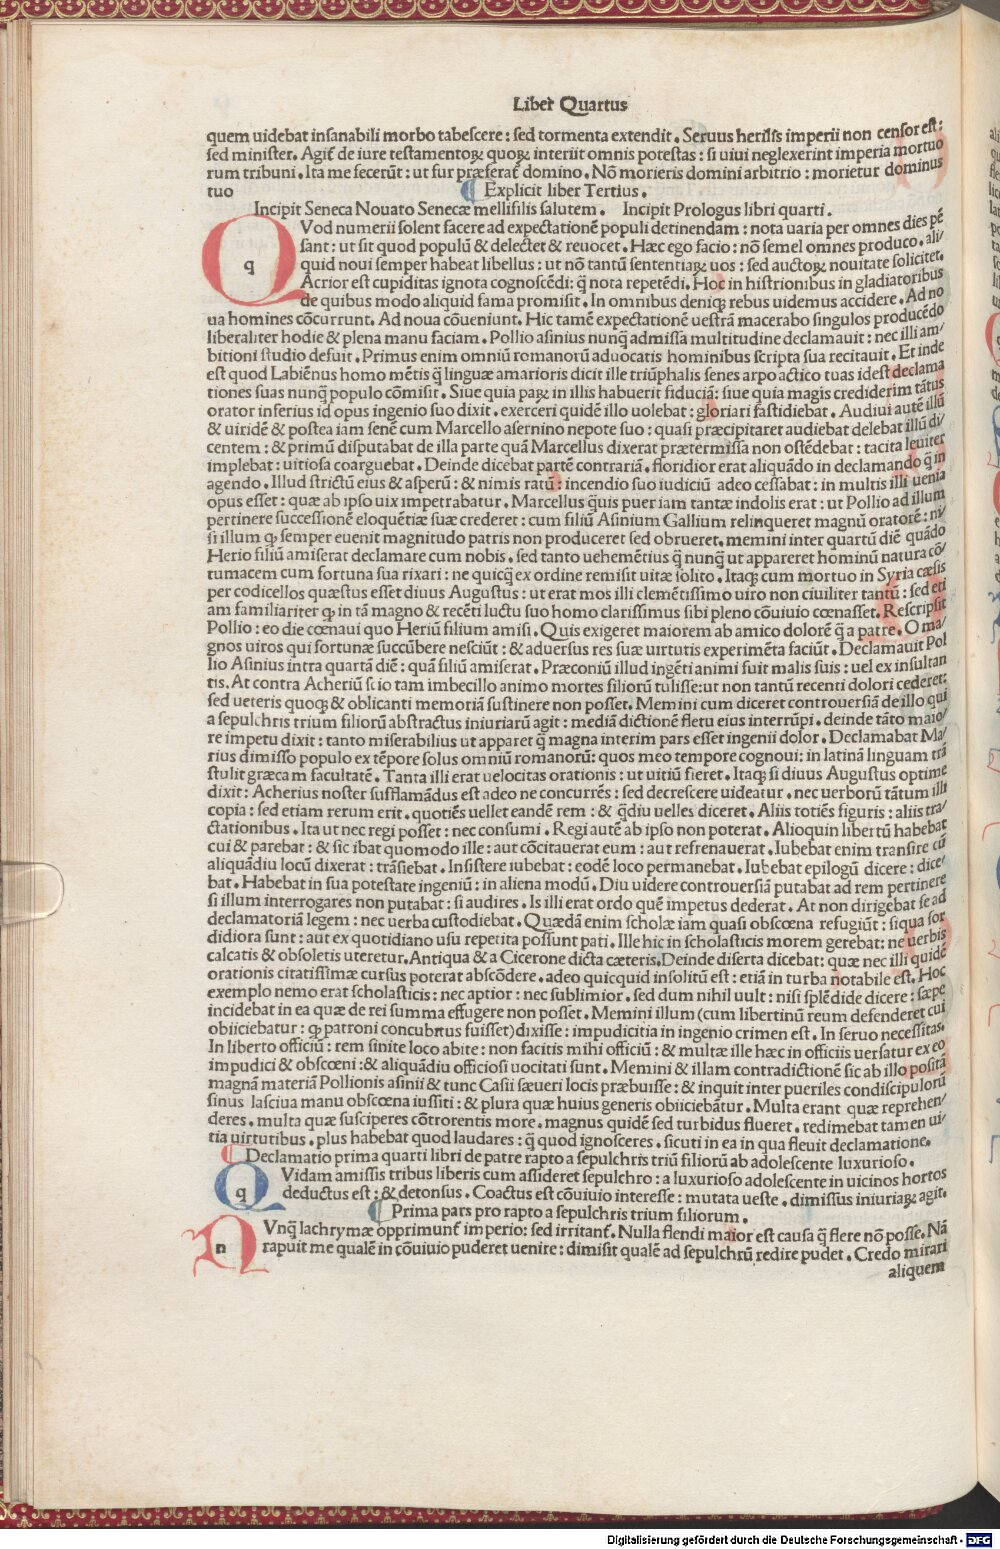 Liber Quartus
quem uidebat insanabili morbo tabescere : sed tormenta extendit . Seruus herilis imperii non censor est :
sed minister . Agit̃ de iure testamentoꝝ quoꝝ interiit omnis potestas : si uiui neglexerint imperia mortuo
rum tribuni . Ita me fecerūt : ut fur præferat̃ domino . Nō morieris domini arbitrio : morietur dominus
tuo Explicit liber Tertius .
Incipit Seneca Nouato Senecæ mellifilis salutem . Incipit Prologus libri quarti .
q Vod numerii solent facere ad expectationē populi detinendam : nota uaria per omnes dies pē
sant : ut sit quod populū & delectet & reuocet . Hæc ego facio : nō semel omnes produco . ali/
quid noui semper habeat libellus : ut nō tantū sententiaꝝ uos : sed auctoꝝ nouitate solicitet .
Acrior est cupiditas ignota cognoscēdi : q̄ nota repetēdi . Hoc in histrionibus in gladiatoribus
de quibus modo aliquid fama promisit . In omnibus deniqꝫ rebus uidemus accidere . Ad no
ua homines cōcurrunt . Ad noua cōueniunt . Hic tamē expectationē uestrā macerabo singulos producēdo
liberaliter hodie & plena manu faciam . Pollio asinius nunq̄ admissa multitudine declamauit : nec illi am/
bitioni studio defuit . Primus enim omniū romanorū aduocatis hominibus scripta sua recitauit . Et inde
est quod Labiēnus homo mētis q̄ linguæ amarioris dicit ille triūphalis senes arpo actico tuas idest declama
tiones suas nunq̄ populo cōmisit . Siue quia paꝝ in illis habuerit fiduciā : siue quia magis crediderim tātus
orator inferius id opus ingenio suo dixit . exerceri quidē illo uolebat : gloriari fastidiebat . Audiui autē illū
& uiridē & postea iam senē cum Marcello asernino nepote suo : quasi præcipitaret audiebat delebat illū di/
centem : & primū disputabat de illa parte quā Marcellus dixerat prætermissa non ostēdebat : tacita leuiter
implebat : uitiosa coarguebat . Deinde dicebat partē contrariā . floridior erat aliquādo in declamando q̄ in
agendo . Illud strictū eius & asperū : & nimis ratū : incendio suo iudiciū adeo cessabat : in multis illi uenia
opus esset : quæ ab ipso uix impetrabatur . Marcellus q̄uis puer iam tantæ indolis erat : ut Pollio ad illum
pertinere successionē eloquētiæ suæ crederet : cum filiū Asinium Gallium relinqueret magnū oratorē : ni/
si illum qꝫ semper euenit magnitudo patris non produceret sed obrueret . memini inter quartū diē quādo
Herio filiū amiserat declamare cum nobis . sed tanto uehemētius q̄ nunq̄ ut appareret hominū natura cō/
tumacem cum fortuna sua rixari : ne quicq̄ ex ordine remisit uitæ solito . Itaqꝫ cum mortuo in Syria cæsis
per codicellos quæstus esset diuus Augustus : ut erat mos illi clemētissimo uiro non ciuiliter tantū : sed eti
am familiariter qꝫ in tā magno & recēti luctu suo homo clarissimus sibi pleno cōuiuio cœnasset . Rescripsit
Pollio : eo die cœnaui quo Heriū filium amisi . Quis exigeret maiorem ab amico dolorē q̄ a patre . O ma/
gnos uiros qui fortunæ succūbere nesciūt : & aduersus res suæ uirtutis experimēta faciūt . Declamauit Pol
lio Asinius intra quartā diē : quā filiū amiserat . Præconiū illud ingēti animi fuit malis suis : uel ex insultan
tis . At contra Acheriū scio tam imbecillo animo mortes filiorū tulisse : ut non tantū recenti dolori cederet :
sed ueteris quoqꝫ & oblicanti memoriā sustinere non posset . Memini cum diceret controuersiā de illo qui
a sepulchris trium filiorū abstractus iniuriarū agit : mediā dictionē fletu eius interrūpi . deinde tāto maio/
re impetu dixit : tanto miserabilius ut apparet q̄ magna interim pars esset ingenii dolor . Declamabat Ma/
rius dimisso populo ex tēpore solus omniū romanorū : quos meo tempore cognoui : in latinā linguam trā
stulit græcam facultatē . Tanta illi erat uelocitas orationis : ut uitiū fieret . Itaqꝫ si diuus Augustus optime
dixit : Acherius noster sufflamādus est adeo ne concurrēs : sed decrescere uideatur . nec uerborū tātum illi
copia : sed etiam rerum erit . quotiēs uellet eandē rem : & q̄diu uelles diceret . Aliis totiēs figuris : aliis tra/
ctationibus . Ita ut nec regi posset : nec consumi . Regi autē ab ipso non poterat . Alioquin libertū habebat
cui & parebat : & sic ibat quomodo ille : aut cōcitauerat eum : aut refrenauerat . Iubebat enim transire cū
aliquādiu locū dixerat : trāsiebat . Insistere iubebat : eodē loco permanebat . Iubebat epilogū dicere : dice/
bat . Habebat in sua potestate ingeniū : in aliena modū . Diu uidere controuersiā putabat ad rem pertinere
si illum interrogares non putabat : si audires . Is illi erat ordo quē impetus dederat . At non dirigebat se ad
declamatoriā legem : nec uerba custodiebat . Quædā enim scholæ iam quasi obscœna refugiūt : siqua sor
didiora sunt : aut ex quotidiano usu repetita possunt pati . Ille hic in scholasticis morem gerebat : ne uerbis
calcatis & obsoletis uteretur . Antiqua & a Cicerone dicta cæteris . Deinde diserta dicebat : quæ nec illi quidē
orationis citatissimæ cursus poterat abscōdere . adeo quicquid insolitū est : etiā in turba notabile est . Hoc
exemplo nemo erat scholasticis : nec aptior : nec sublimior . sed dum nihil uult : nisi splēdide dicere : sæpe
incidebat in ea quæ de rei summa effugere non posset . Memini illum (cum libertinū reum defenderet cui
obiiciebatur : qꝫ patroni concubitus fuisset) dixisse : impudicitia in ingenio crimen est . In seruo necessitas .
In liberto officiū : rem sinite loco abite : non facitis mihi officiū : & multæ ille hæc in officiis uersatur ex eo
impudici & obscœni : & aliquādiu officiosi uocitati sunt . Memini & illam contradictionē sic ab illo positā
magnā materiā Pollionis asinii & tunc Casii sæueri locis præbuisse : & inquit inter pueriles condiscipulorū
sinus lasciua manu obscœna iussiti : & plura quæ huius generis obiiciebātur . Multa erant quæ reprehen/
deres . multa quæ susciperes cōtrorentis more . magnus quidē sed turbidus flueret . redimebat tamen ui/
tia uirtutibus . plus habebat quod laudares : q̄ quod ignosceres . sicuti in ea in qua fleuit declamatione .
Declamatio prima quarti libri de patre rapto a sepulchris triū filiorū ab adolescente luxurioso .
q Vidam amissis tribus liberis cum assideret sepulchro : a luxurioso adolescente in uicinos hortos
deductus est : & detonsus . Coactus est cōuiuio interesse : mutata ueste . dimissus iniuriaꝝ agit .
Prima pars pro rapto a sepulchris trium filiorum .
n Vnq̄ lachrymæ opprimunt̃ imperio : sed irritant̃ . Nulla flendi maior est causa q̄ flere nō posse . Nā
rapuit me qualē in cōuiuio puderet uenire : dimisit qualē ad sepulchrū redire pudet . Credo mirari
aliquem
Digitalisierung gefördert durch die Deutsche Forschungsgemeinschaft - DFG